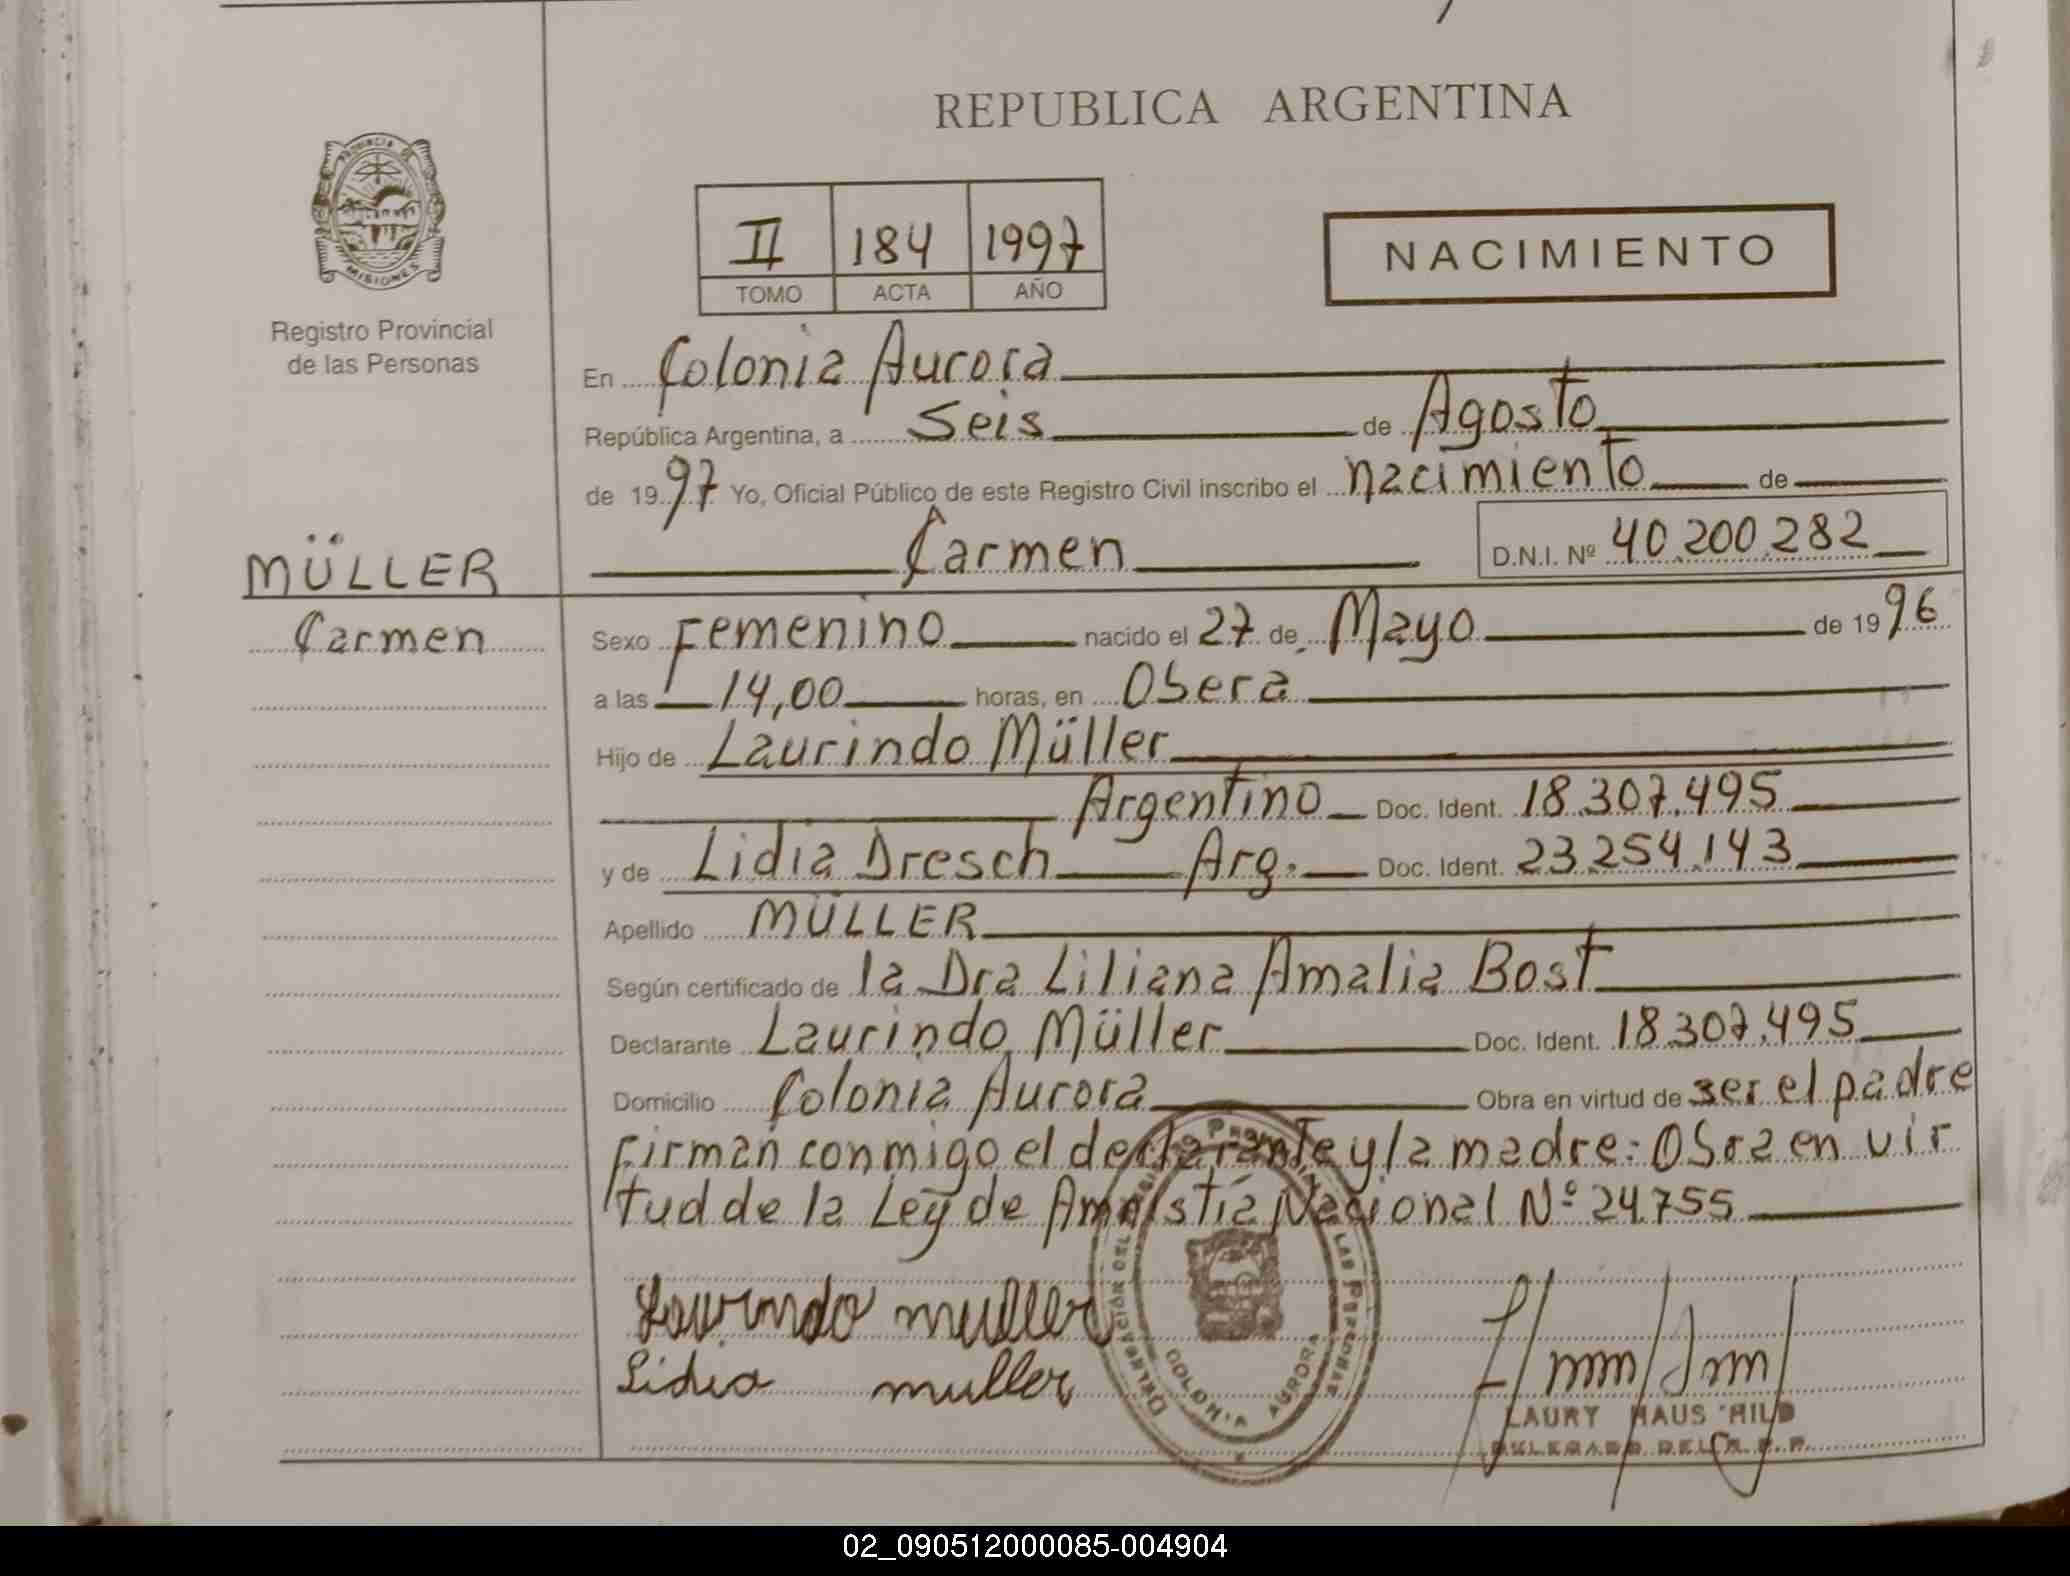 REPUBLICA ARGENTINA
PROVINCIA DE
MISIONES
Registro Provincial
de las Personas
II 184 1997
TOMO ACTA AÑO
NACIMIENTO
En Colonia Aurora
República Argentina, a Seis de Agosto
de 1997 Yo, Oficial Público de este Registro Civil inscribo el nacimiento de
Carmen D.N.I. Nº 40.200.282
MÜLLER
Carmen
Sexo Femenino nacido el 27 de Mayo de 1996
a las 14,00 horas, en Obera
Hijo de Laurindo Müller
Argentino Doc. Ident. 18.307.495
y de Lidia Dresch Arg. Doc. Ident. 23.254.143
Apellido MÜLLER
Según certificado de la Dra Liliana Amalia Bost
Declarante Laurindo Müller Doc. Ident. 18.307.495
Domicilio Colonia Aurora Obra en virtud de ser el padre
Firman conmigo el declarante y la madre: Obra en vir
tud de la Ley de Amnistía Nacional Nº 24.755
Laurindo muller
Lidia muller
DELEGACIÓN DEL REGISTRO PROVINCIAL DE LAS PERSONAS
COLONIA AURORA
LAURY HAUS HILD
DELEGADO DEL R. P. P.
02_090512000085-004904